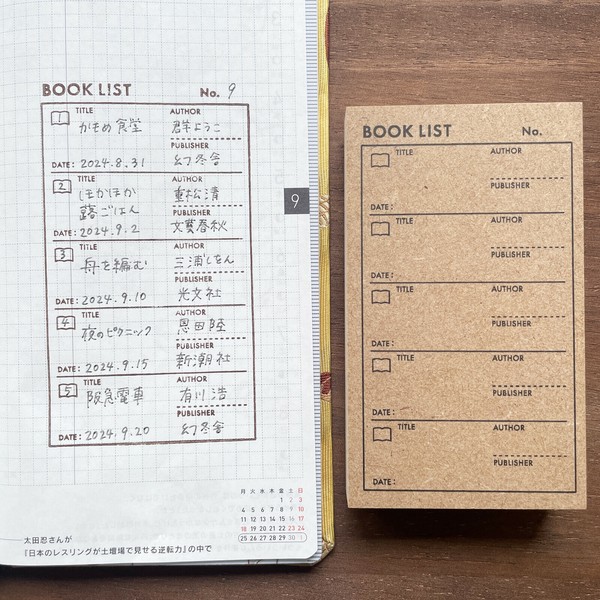 BOOK LIST No. 9
1 TITLE AUTHOR
かもめ食堂 群ようこ
PUBLISHER
DATE: 2024.8.31 幻冬舎
2 TITLE AUTHOR
ほかほか 重松清
ごはん PUBLISHER
DATE: 2024.9.2 文藝春秋
3 TITLE AUTHOR
舟を編む 三浦しをん
PUBLISHER
DATE: 2024.9.10 光文社
4 TITLE AUTHOR
夜のピクニック 恩田陸
PUBLISHER
DATE: 2024.9.15 新潮社
5 TITLE AUTHOR
阪急電車 有川浩
PUBLISHER
DATE: 2024.9.20 幻冬舎
9
月 火 水 木 金 土 日
1 2 3
4 5 6 7 8 9 10
11 12 13 14 15 16 17
18 19 20 21 22 23 24
25 26 27 28 29 30 1
太田忍さんが
『日本のレスリングが土壇場で見せる逆転力』の中で
BOOK LIST No.
TITLE AUTHOR
PUBLISHER
DATE:
TITLE AUTHOR
PUBLISHER
DATE:
TITLE AUTHOR
PUBLISHER
DATE:
TITLE AUTHOR
PUBLISHER
DATE:
TITLE AUTHOR
PUBLISHER
DATE: